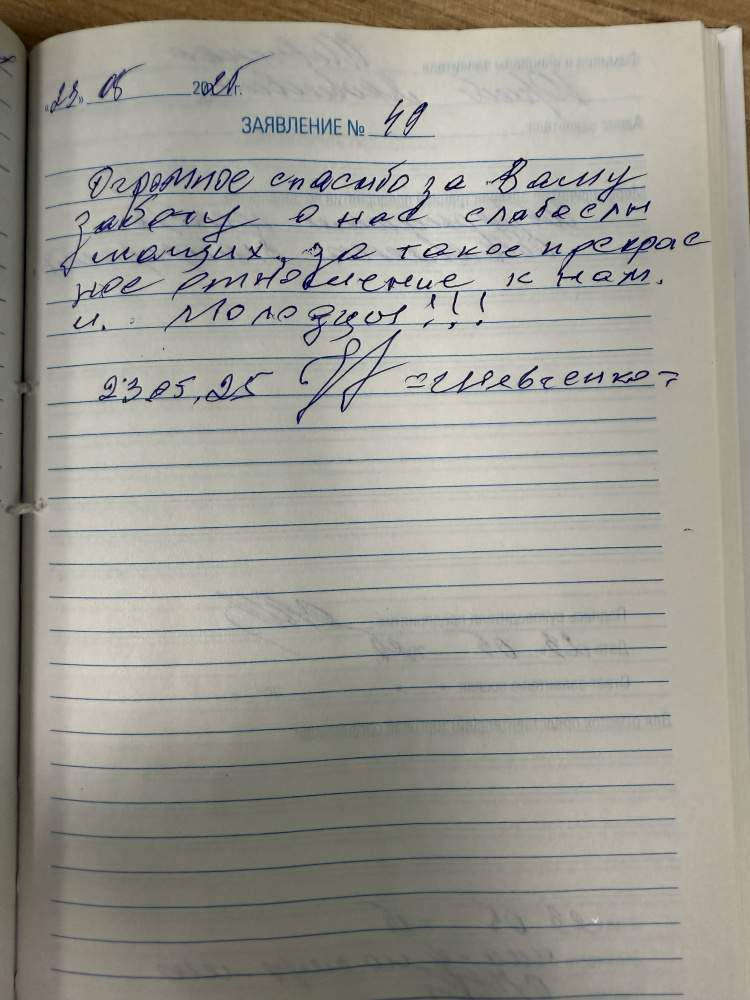 «23» 05 2025г.
ЗАЯВЛЕНИЕ № 49
Огромное спасибо за Вашу
заботу о нас слабослы
шащих, за такое прекрас
ное отношение к нам.
и. Молодцы!!!
23.05.25 =Шевченко=